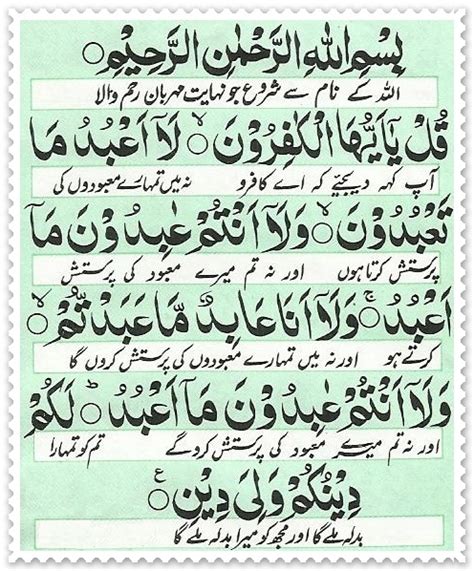 بِسْمِ اللهِ الرَّحْمٰنِ الرَّحِيْمِ ○
اللہ کے نام سے شروع جو نہایت مہربان رحم والا
قُلْ يٰۤاَيُّهَا الْكٰفِرُوْنَ ○ لَاۤ اَعْبُدُ مَا
آپ کہہ دیجیّے کہ اے کافرو نہ میں تمہارے معبودوں کی
تَعْبُدُوْنَ ○ وَلَاۤ اَنْتُمْ عٰبِدُوْنَ مَاۤ
پرستش کرتا ہوں اور نہ تم میرے معبود کی پرستش
اَعْبُدُ ○ وَلَاۤ اَنَا عَابِدٌ مَّا عَبَدْتُّمْ ○
کرتے ہو اور نہ میں تمہارے معبودوں کی پرستش کروں گا
وَلَاۤ اَنْتُمْ عٰبِدُوْنَ مَاۤ اَعْبُدُ ○ لَكُمْ
اور نہ تم میرے معبود کی پرستش کروگے تم کو تمہارا
دِيْنُكُمْ وَلِىَ دِيْنِ ○
بدلہ ملے گا اور مجھ کو میرا بدلہ ملے گا